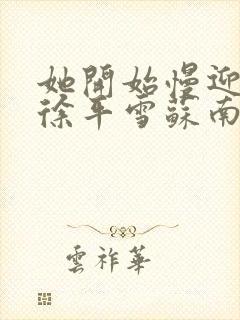 她開始慢迎
徐平雪蘇南
雲祚華